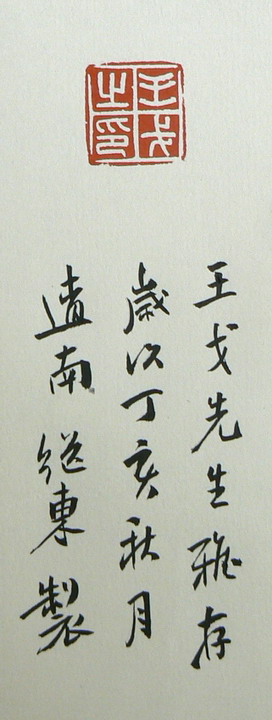 王戈之印
王戈先生雅存
歲次丁亥秋月
遼南 继東 製